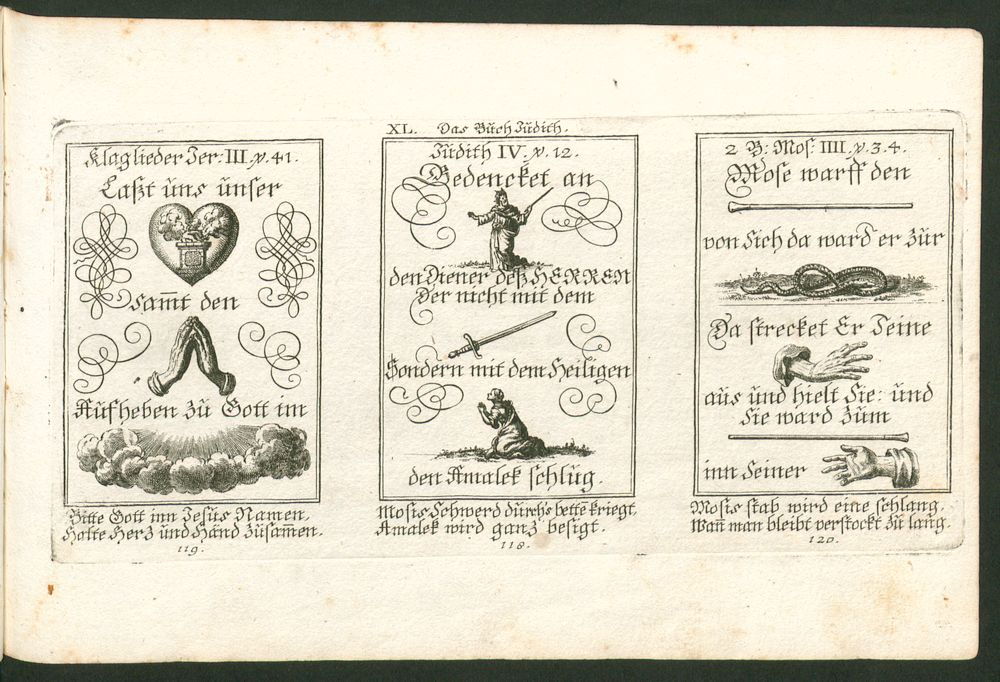 Klaglieder Jer: III. v. 41.
Laßt uns unser
sam̄t den
Aufheben zu Gott im
Bitte Gott inn Jesus Namen,
Halte Herz und Hand zusam̄en.
119.
XL. Das Buch Judith.
Judith IV. v. 12.
Bedencket an
den Diener deß HERREN
Der nicht mit dem
Sondern mit dem Heiligen
den Amalek schlug.
Mosis Schwerd durch's bette kriegt,
Amalek wird ganz besigt.
118.
2 B: Mos: IIII. v. 3. 4.
Mose warff den
von sich da ward er zur
Da strecket Er Seine
aus und hielt Sie: und
Sie ward zum
inn Seiner
Mosis stab wird eine schlang,
Wan̄ man bleibt verstockt zu lang.
120.